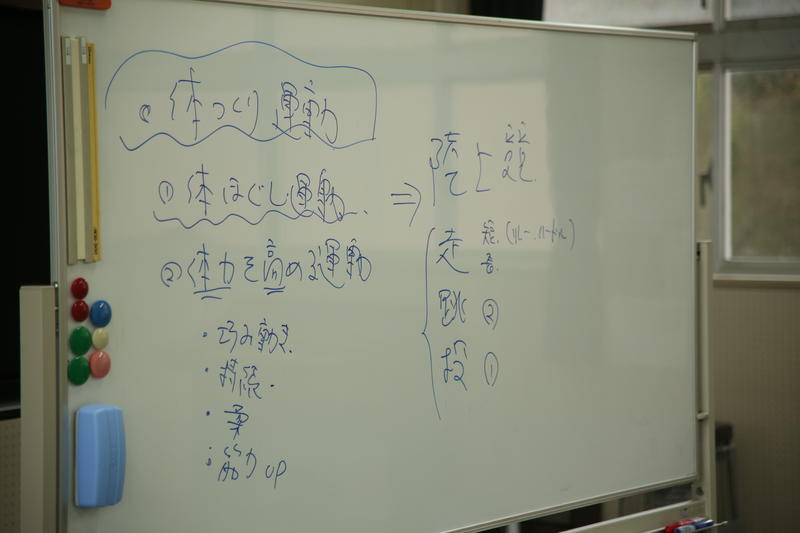 体つくり運動
① 体ほぐし運動
② 体力を高める運動
・巧み動き
・持続
・柔
・筋力up
⇒ 陸上競
走 短(リレー、ハードル)
長
跳 ②
投 ①